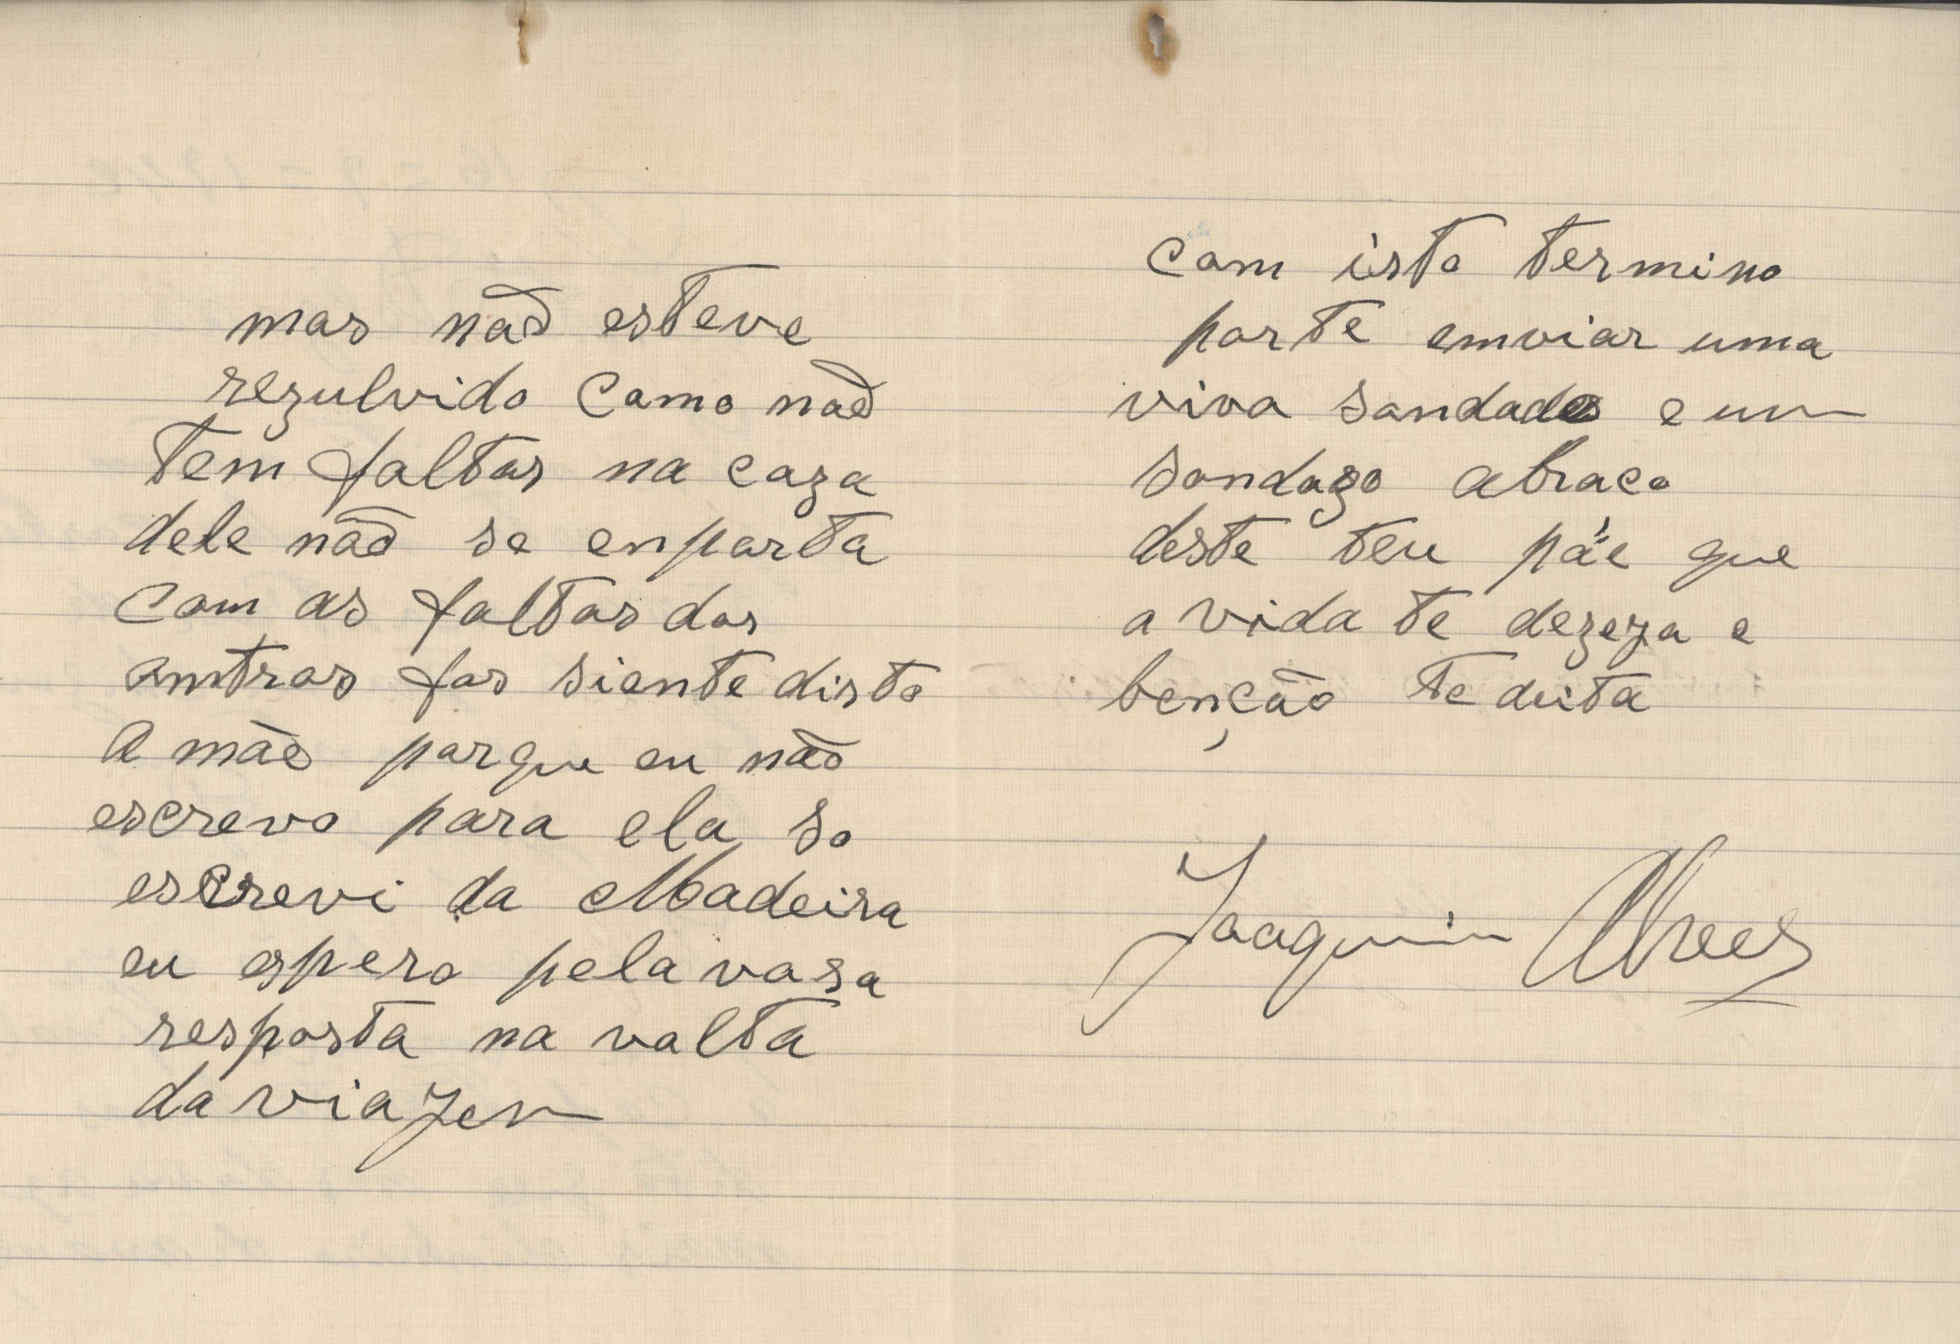 mas não esteve
rezulvido como não
tem faltas na caza
dele não se enporta
com as faltas dos
amtros fas siente disto
a mãe porque eu não
escrevo para ela so
escrevi da Madeira
eu espero pela vosa
resposta na volta
da viajen
com isto termino
porte emviar uma
viva sandades e um
sandozo abraco
deste teu páe que
a vida te dezeja e
benção te deita
Joaquim Alves